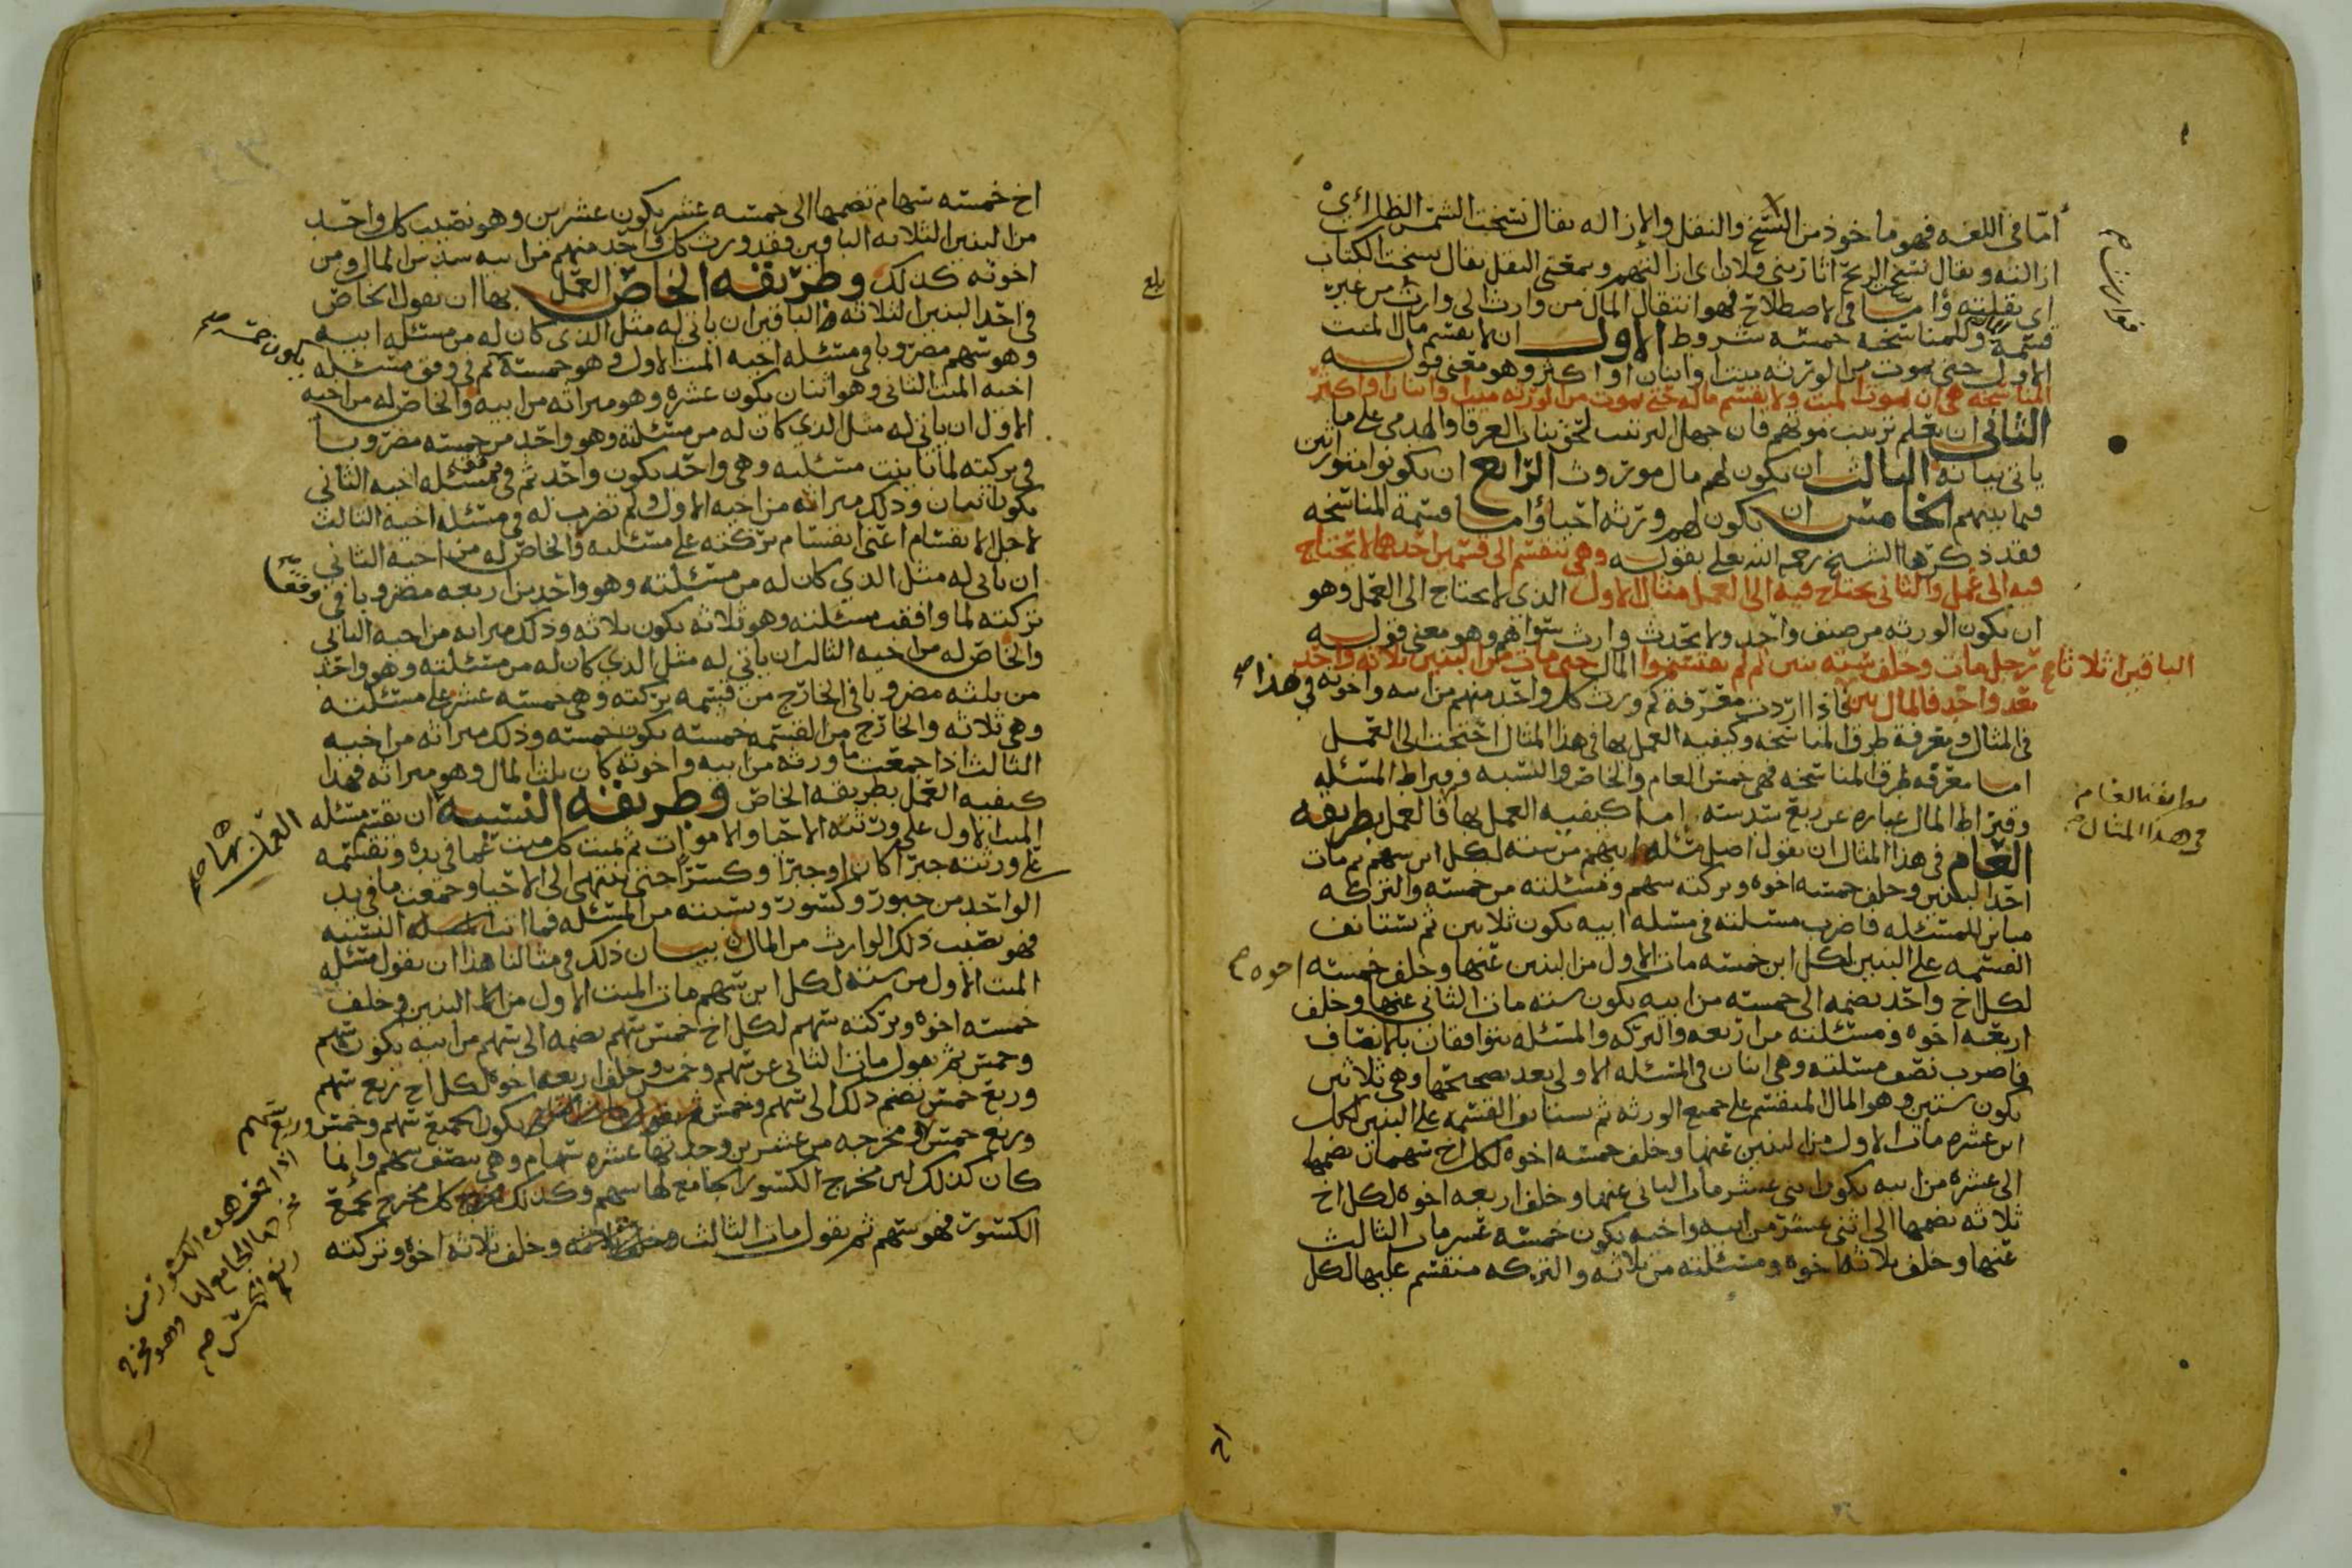 أما في اللغه فهو ماخوذ من النسخ والنقل والإزاله يقال نسخت الشمس الظل اي
ازالته ويقال نسخ الريح اثار بني فلان اي ازالتهم وبمعنى النقل يقال نسخت الكتاب
اي نقلته وأما في الاصطلاح فهو انتقال المال من وارث الى وارث من غير
قسمه وللمناسخه خمسه شروط الاول ان لا يقسم مال الميت
الاول حتى يموت من الورثه ميت او اثنان او اكثر وهو معنى قوله
المناسخه هي ان يموت الميت ولا يقسم ماله حتى يموت من الورثه ميت او اثنان او اكثر
الثاني ان يعلم ترتيب موتهم فان جهل الترتيب لحق بباب الغرقا والهدمى على ما
ياتي بيانه الثالث ان يكون لهم مال موروث الرابع ان يكونوا متوارثين
فيما بينهم الخامس ان يكون لهم ورثه احيا وأما قسمة المناسخه
فقد ذكرها الشيخ رحمه الله تعلى بقوله وهي تنقسم الى قسمين احدهما لا يحتاج
فيه الى عمل والثاني يحتاج فيه الى العمل مثال الاول الذي لا يحتاج الى العمل وهو
ان يكون الورثه من صنف واحد ولا يحدث وارث سواهم وهو معنى قوله
رجل مات وخلف سته بنين ثم لم يقتسموا المال حتى مات من البنين ثلاثه واحد
بعد واحد فالمال بين الباقين اثلاثا فاذا اردت معرفة كم ورث كل واحد منهم من ابيه واخوته في هذا
في المثال ومعرفة طرق المناسخه وكيفيه العمل بها في هذا المثال احتجت الى العمل
اما معرفه طرق المناسخه فهي خمس العام والخاص والنسبه وقيراط المسئله
وقيراط المال عباره عن ربع سدسه اما كيفيه العمل بها فالعمل بطريقه
العام في هذا المثال ان يقول اصل مسئله ابيهم من سته لكل ابن سهم ثم مات
احد البنين وخلف خمسه اخوه وتركته سهم ومسئلته من خمسه والتركه
مباين للمسئله فاضرب مسئلته في مسئله ابيه يكون ثلاثين ثم تستانف
القسمه على البنين لكل ابن خمسه مات الاول من البنين عنها وخلف خمسه اخوه
لكل اخ واحد يضمه الى خمسه من ابيه يكون سته مات الثاني عنها وخلف
اربعه اخوه ومسئلته من اربعه والتركه والمسئله يتوافقان بالانصاف
فاضرب نصف مسئلته وهي اثنان في المسئله الاولى بعد تصحيحها وهي ثلاثين
يكون ستين وهو المال المنقسم على جميع الورثه ثم تستانف القسمه على البنين لكل
ابن عشره مات الاول من البنين عنها وخلف خمسه اخوه لكل اخ سهمان يضمها
الى عشره من ابيه يكون اثني عشر مات الثاني عنها وخلف اربعه اخوه لكل اخ
ثلاثه يضمها الى اثني عشر من ابيه واخيه يكون خمسه عشر مات الثالث
عنها وخلف ثلاثه اخوه ومسئلته من ثلاثه والتركه منقسم عليها لكل
بطريقه العام
في هذا المثال
اخ خمسه سهام تضمها الى خمسه عشر يكون عشرين وهو نصيب كل واحد
من البنين الثلاثه الباقين وقد ورث كل واحد منهم من ابيه سدس المال ومن
اخوته كذلك وطريقه الخاص العمل بها ان يقول الخاص
في احد البنين الثلاثه الباقين ان ياتي له مثل الذي كان له من مسئله ابيه
وهو سهم مضروبا في مسئله اخيه الميت الاول وهو خمسه يكون خمسه ثم في وفق مسئله
اخيه الميت الثاني وهو اثنان يكون عشره وهو ميراثه من ابيه والخاص له من اخيه
الاول ان ياتي له مثل الذي كان له من مسئلته وهو واحد من خمسه مضروبا
في تركته لما باينت مسئلته وهي واحد يكون واحد ثم في وفق مسئله اخيه الثاني
يكون اثنان وذلك ميراثه من اخيه الاول ولم تضرب له في مسئله اخيه الثالث
لاجل الانقسام اعني انقسام تركته على مسئلته والخاص له من اخيه الثاني
ان ياتي له مثل الذي كان له من مسئلته وهو واحد من اربعه مضروبا في وفق
تركته لما وافقت مسئلته وهو ثلاثه يكون ثلاثه وذلك ميراثه من اخيه الثاني
والخاص له من اخيه الثالث ان ياتي له مثل الذي كان له من مسئلته وهو واحد
من ثلثه مضروبا في الخارج من قسمه تركته وهي خمسه عشر على مسئلته
وهي ثلاثه والخارج من القسمه خمسه يكون خمسه وذلك ميراثه من اخيه
الثالث اذا جمعت ما ورثه من ابيه واخوته كان ثلث المال وهو ميراثه فهذا
كيفيه العمل بطريقه الخاص وطريقه النسبه العمل بها ان يقسم مسئله
الميت الاول على ورثته الاحيا والاموات ثم تميت كل ميت عما في يده وتقسمه
على ورثته جبرا كان او جبرا وكسرا حتى ينتهي الى الاحيا وجمعت ما في يد
الواحد من جبور وكسور ونسبته من المسئله فما اتت النسبه
فهو نصيب ذلك الوارث من المال بيان ذلك في مثالنا هذا ان يقول مسئله
الميت الاول من سته لكل ابن سهم مات الميت الاول من البنين وخلف
خمسه اخوه وتركته سهم لكل اخ خمس سهم يضمه الى سهم من ابيه يكون سهم
وخمس ثم يقول مات الثاني عن سهم وخمس وخلف اربعه اخوه لكل اخ ربع سهم
وربع خمس يضم ذلك الى سهم وخمس يكون الجميع سهم وخمس وربع سهم
وربع خمس ومخرجه من عشرين وجدتها عشره سهام وهي نصف سهم وانما
كان كذلك لان مخرج الكسور الجامع لها سهم وكذلك كل مخرج يجمع
الكسور فهو سهم ثم يقول مات الثالث وخلف ثلاثه اخوه وتركته
بلغ
اخذ هذه الكسور من
مخرجها الجامع لها وهو مخرج
ربع الخمس صح